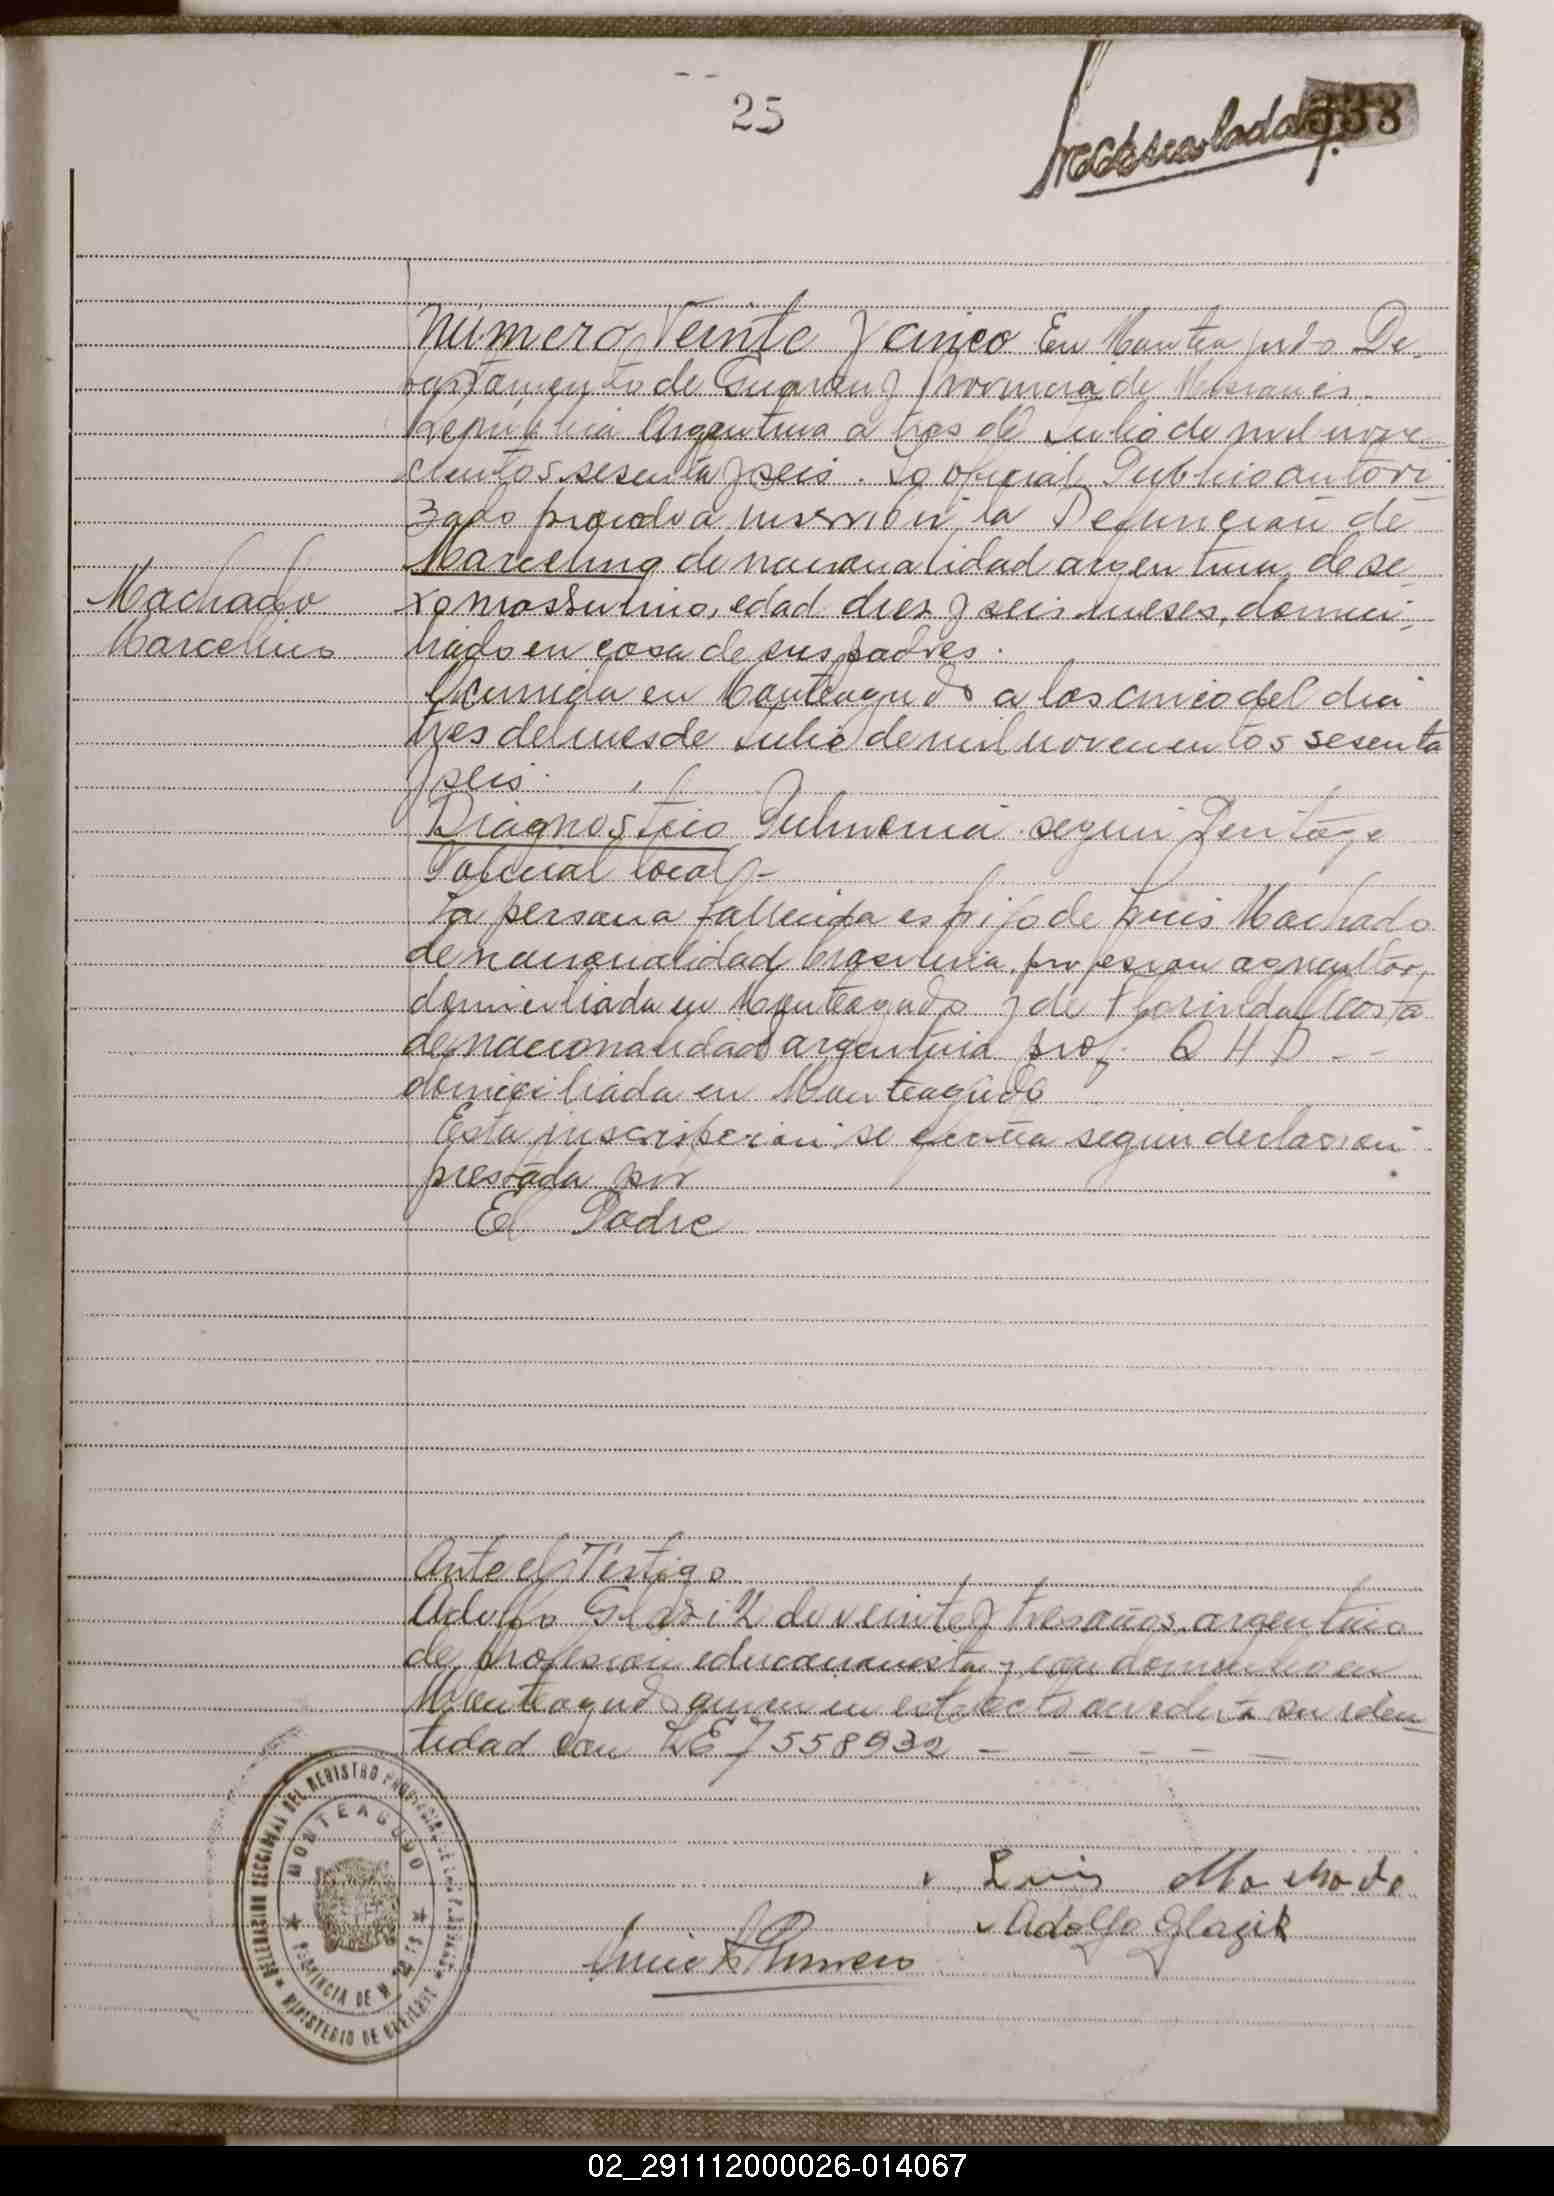 25
333
Machado
Marcelino
Número Veinte y cinco En Monteagudo De-
partamento de Guarany Provincia de Misiones
República Argentina a tres de Julio de mil nove-
cientos sesenta y seis. Yo oficial Publico autori
zado procedo a inscribir la Defuncion de
Marcelino de nacionalidad argentina, de se
xo masculino, edad diez y seis meses, domici-
liado en casa de sus padres.
Ocurrida en Monteagudo a las cinco del dia
tres del mes de Julio de mil novecientos sesenta
y seis.
Diagnostico Pulmonia segun Peritage
Policial local -
La persona fallecida es hijo de Luis Machado
de nacionalidad brasilera, profesion agricultor,
domiciliada en Monteagudo y de Florinda Costa
de nacionalidad argentina prof. Q H D - -
domiciliada en Monteagudo
Esta inscripcion se efectua segun declaracion
prestada por
El Padre
Ante el Testigo
Adolfo Glazik de veinte y tres años, argentino
de profesion educacionista y con domicilio en
Monteagudo quien en este acto acredita su iden-
tidad con LE 7558932 - - - - -
DELEGACION SECCIONAL DEL REGISTRO PROVINCIAL DE LAS PERSONAS
MONTEAGUDO
PROVINCIA DE MISIONES
MINISTERIO DE GOBIERNO
Luis Machado
Adolfo Glazik
02_291112000026-014067